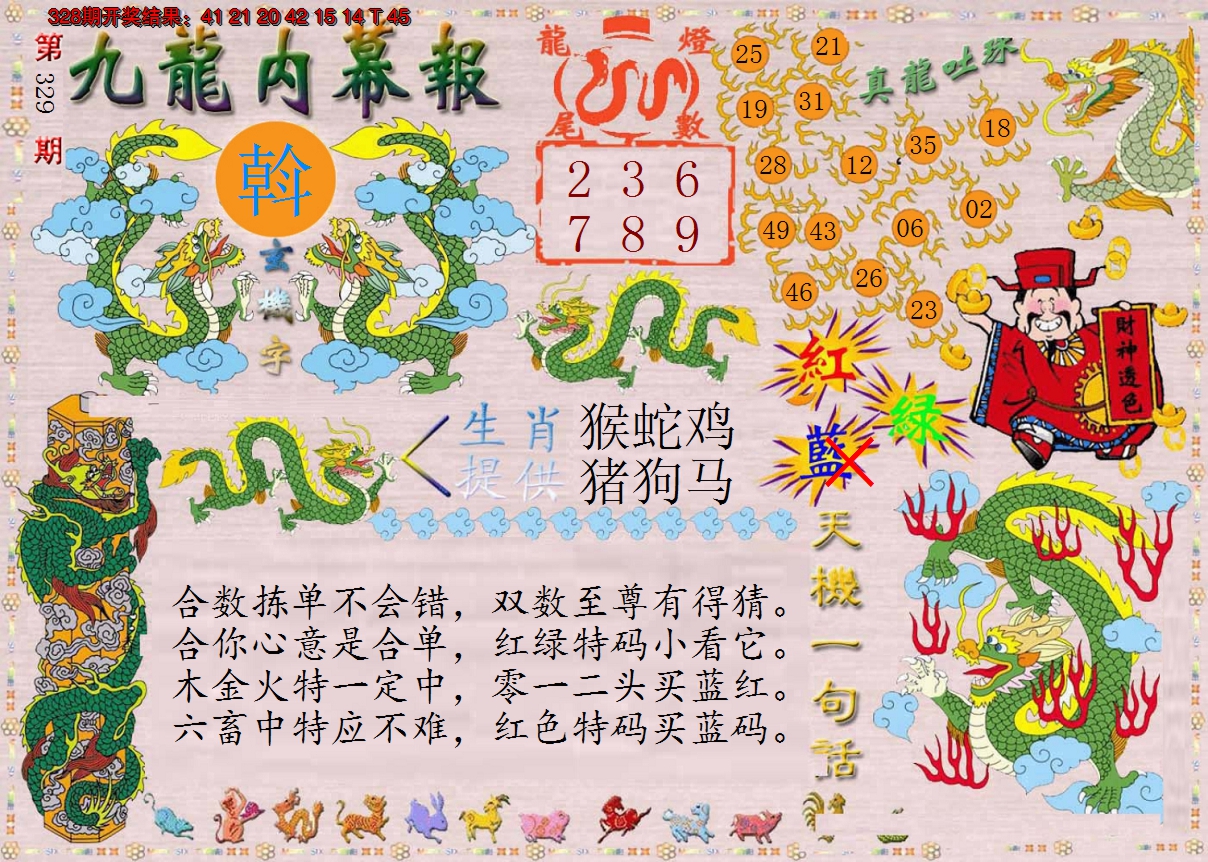 328期开奖结果：41 21 20 42 15 14 T 45
第329期
九龍内幕報
斡
玄機字
龍燈
尾數
2 3 6
7 8 9
真龍吐珠
25
21
19
31
18
35
28
12
02
49
43
06
26
46
23
財神透色
紅
绿
藍
生肖
提供
猴蛇鸡
猪狗马
天機一句話
合数拣单不会错，双数至尊有得猜。
合你心意是合单，红绿特码小看它。
木金火特一定中，零一二头买蓝红。
六畜中特应不难，红色特码买蓝码。